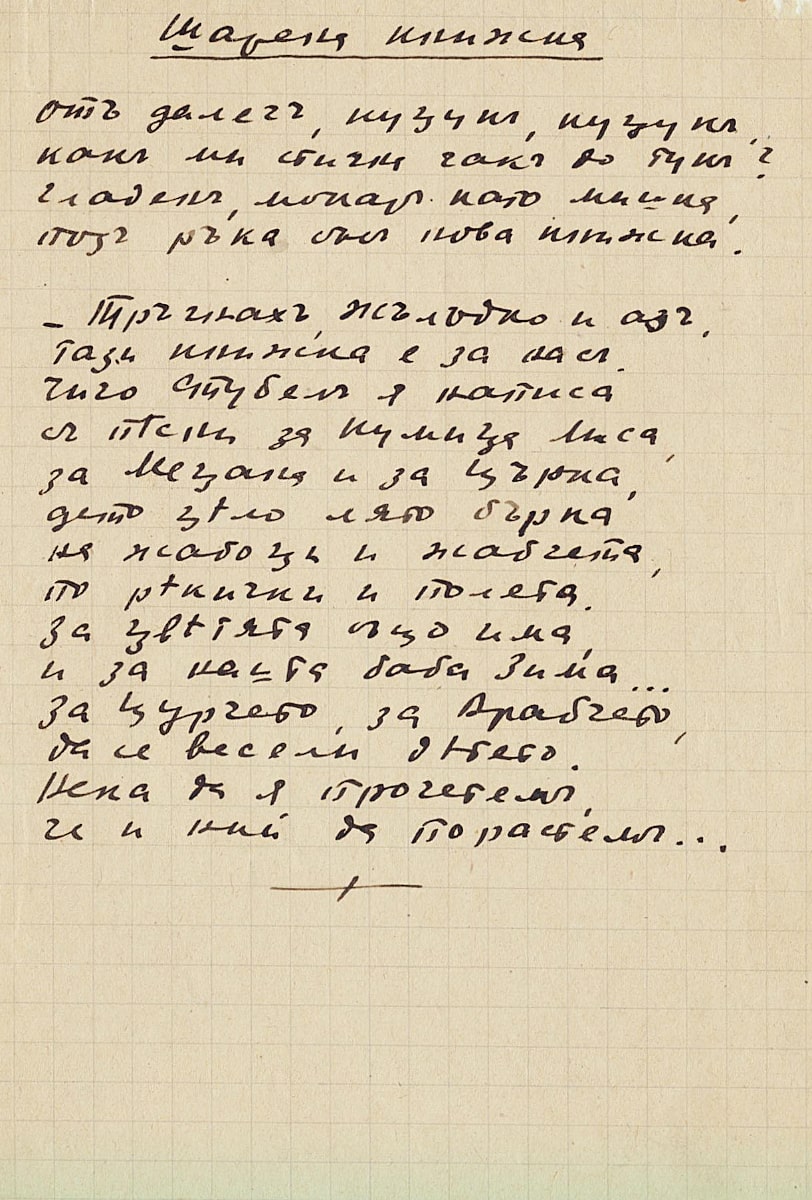 Шарена книжка
отъ далечъ, куцукъ, куцукъ,
какъ ми стигна чакъ до тукъ?
гладенъ, мокаръ като мишка,
подъ ръка съсъ нова книжка.
– Тръгнахъ, Жълъдко и азъ,
тази книжка е за насъ.
чичо Стубелъ я написа
съ пѣсни за Кумица Лиса,
за Мецана и за Църка,
дето цѣло лято бърка
на жабоци и жабчета,
по рѣкички и полета.
За цвѣтята също има,
и за нашта баба Зима...
За Цурчето, за Врабчето,
да се весели дѣтето.
Нека да я прочетемъ,
че и ний да порастемъ...